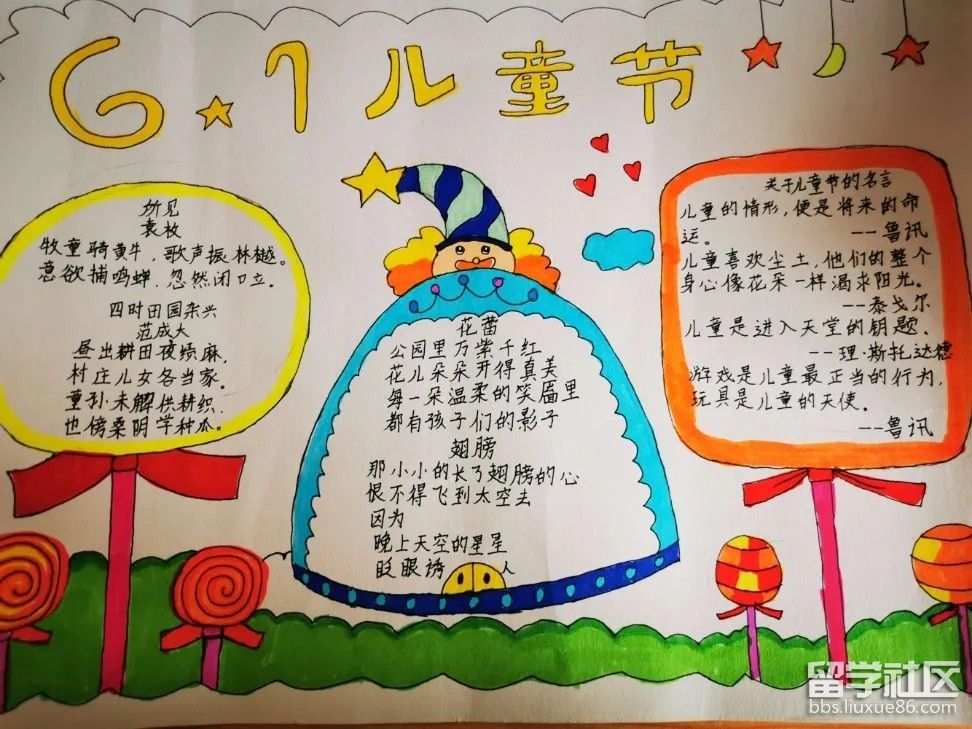 6.1儿童节
所见
袁枚
牧童骑黄牛，歌声振林樾。
意欲捕鸣蝉，忽然闭口立。
四时田园杂兴
范成大
昼出耕田夜绩麻，
村庄儿女各当家。
童孙未解供耕织，
也傍桑阴学种瓜。
花蕾
公园里万紫千红
花儿朵朵开得真美
每一朵温柔的笑靥里
都有孩子们的影子
翅膀
那小小的长了翅膀的心
恨不得飞到太空去
因为
晚上天空的星星
眨眼诱人
关于儿童节的名言
儿童的情形，便是将来的命
运。 --鲁讯
儿童喜欢尘土，他们的整个
身心像花朵一样渴求阳光。
--泰戈尔
儿童是进入天堂的钥匙。
--理·斯托达德
游戏是儿童最正当的行为，
玩具是儿童的天使。
--鲁讯
留学社区
bbs.liuxue86.com